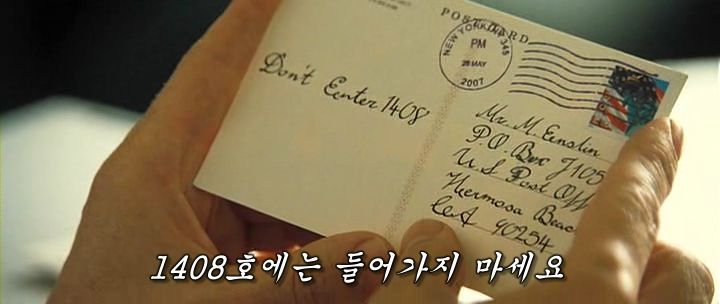 POSTCARD
NEW YORK NY 345
PM
25 MAY
2007
Don't Eenter 1408
Mr. M. Eenslin
P.O. Box 7105
U.S Post Off
Hermosa Beac
CA 90254
1408호에는 들어가지 마세요